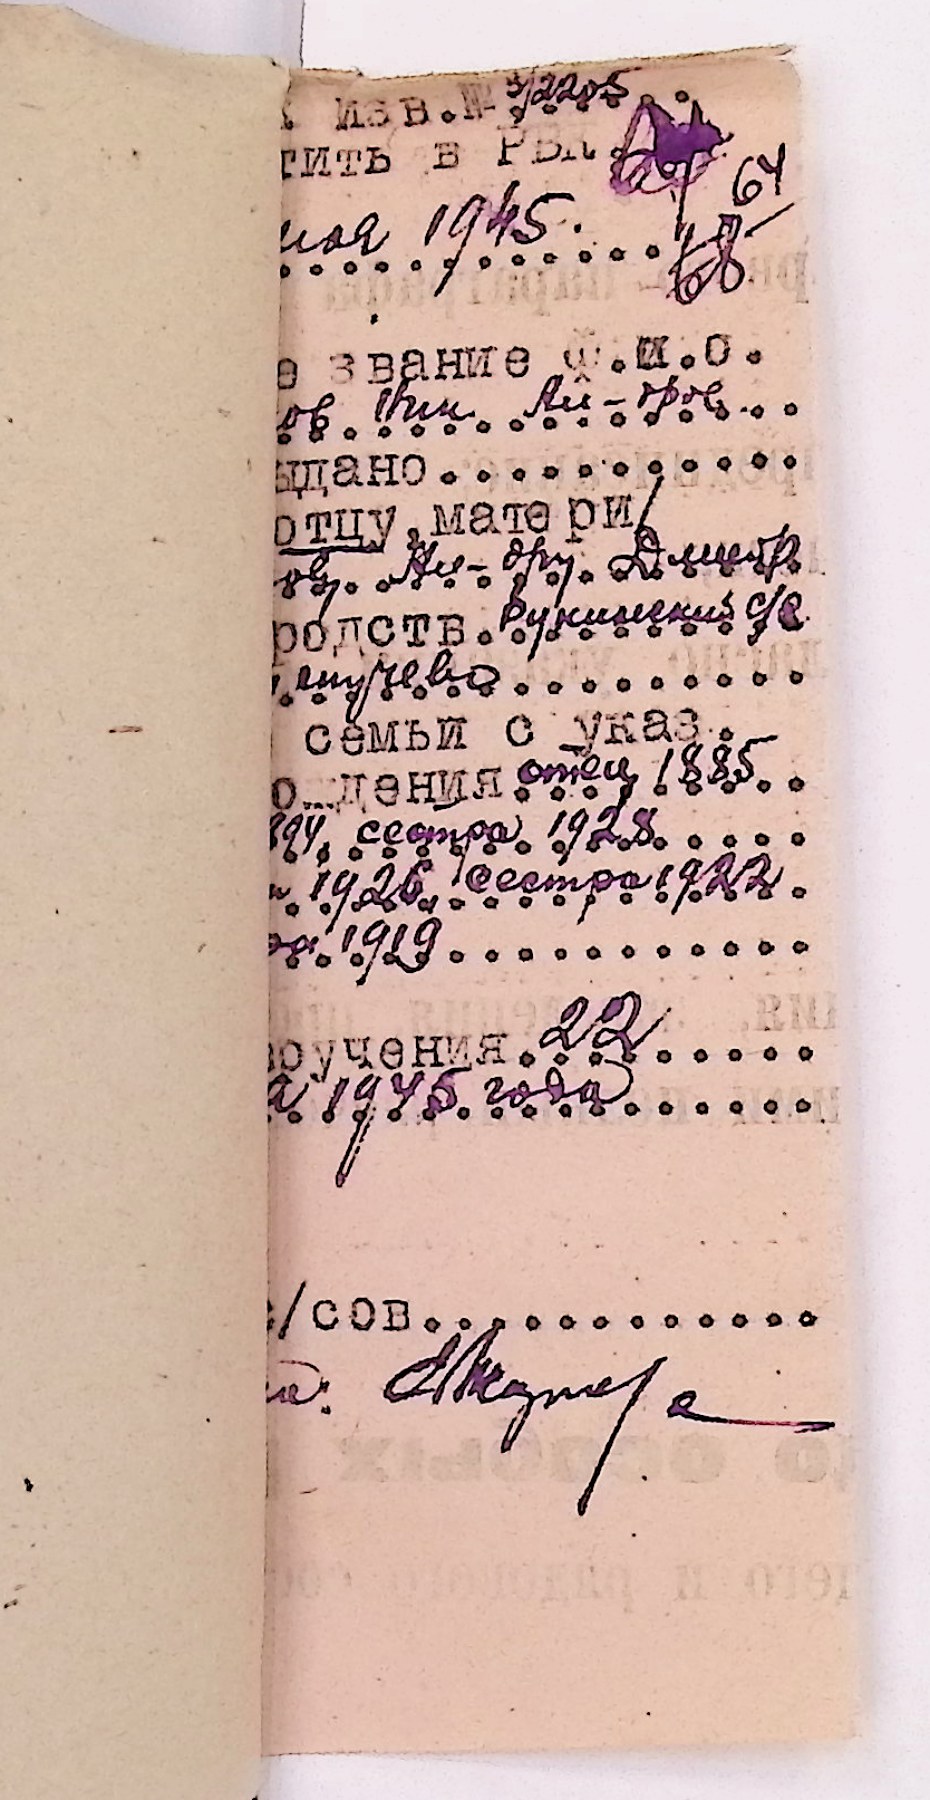 К изв.№ 3/2205..
тить в РВК.
64
мая 1945.
68
е звание Ф.И.О.
ов Ник. Ал-дров...
ыдано...........
отцу, матери/
ову. Ал-дру. Дмитр.
родств. Рукинский с/с
семьи с указ.
о...дения отец 1885..
894, сестра 1928.....
1926, сестра 1922.
ра 1919...........
ручения. 22
а 1945 года
с/сов.............